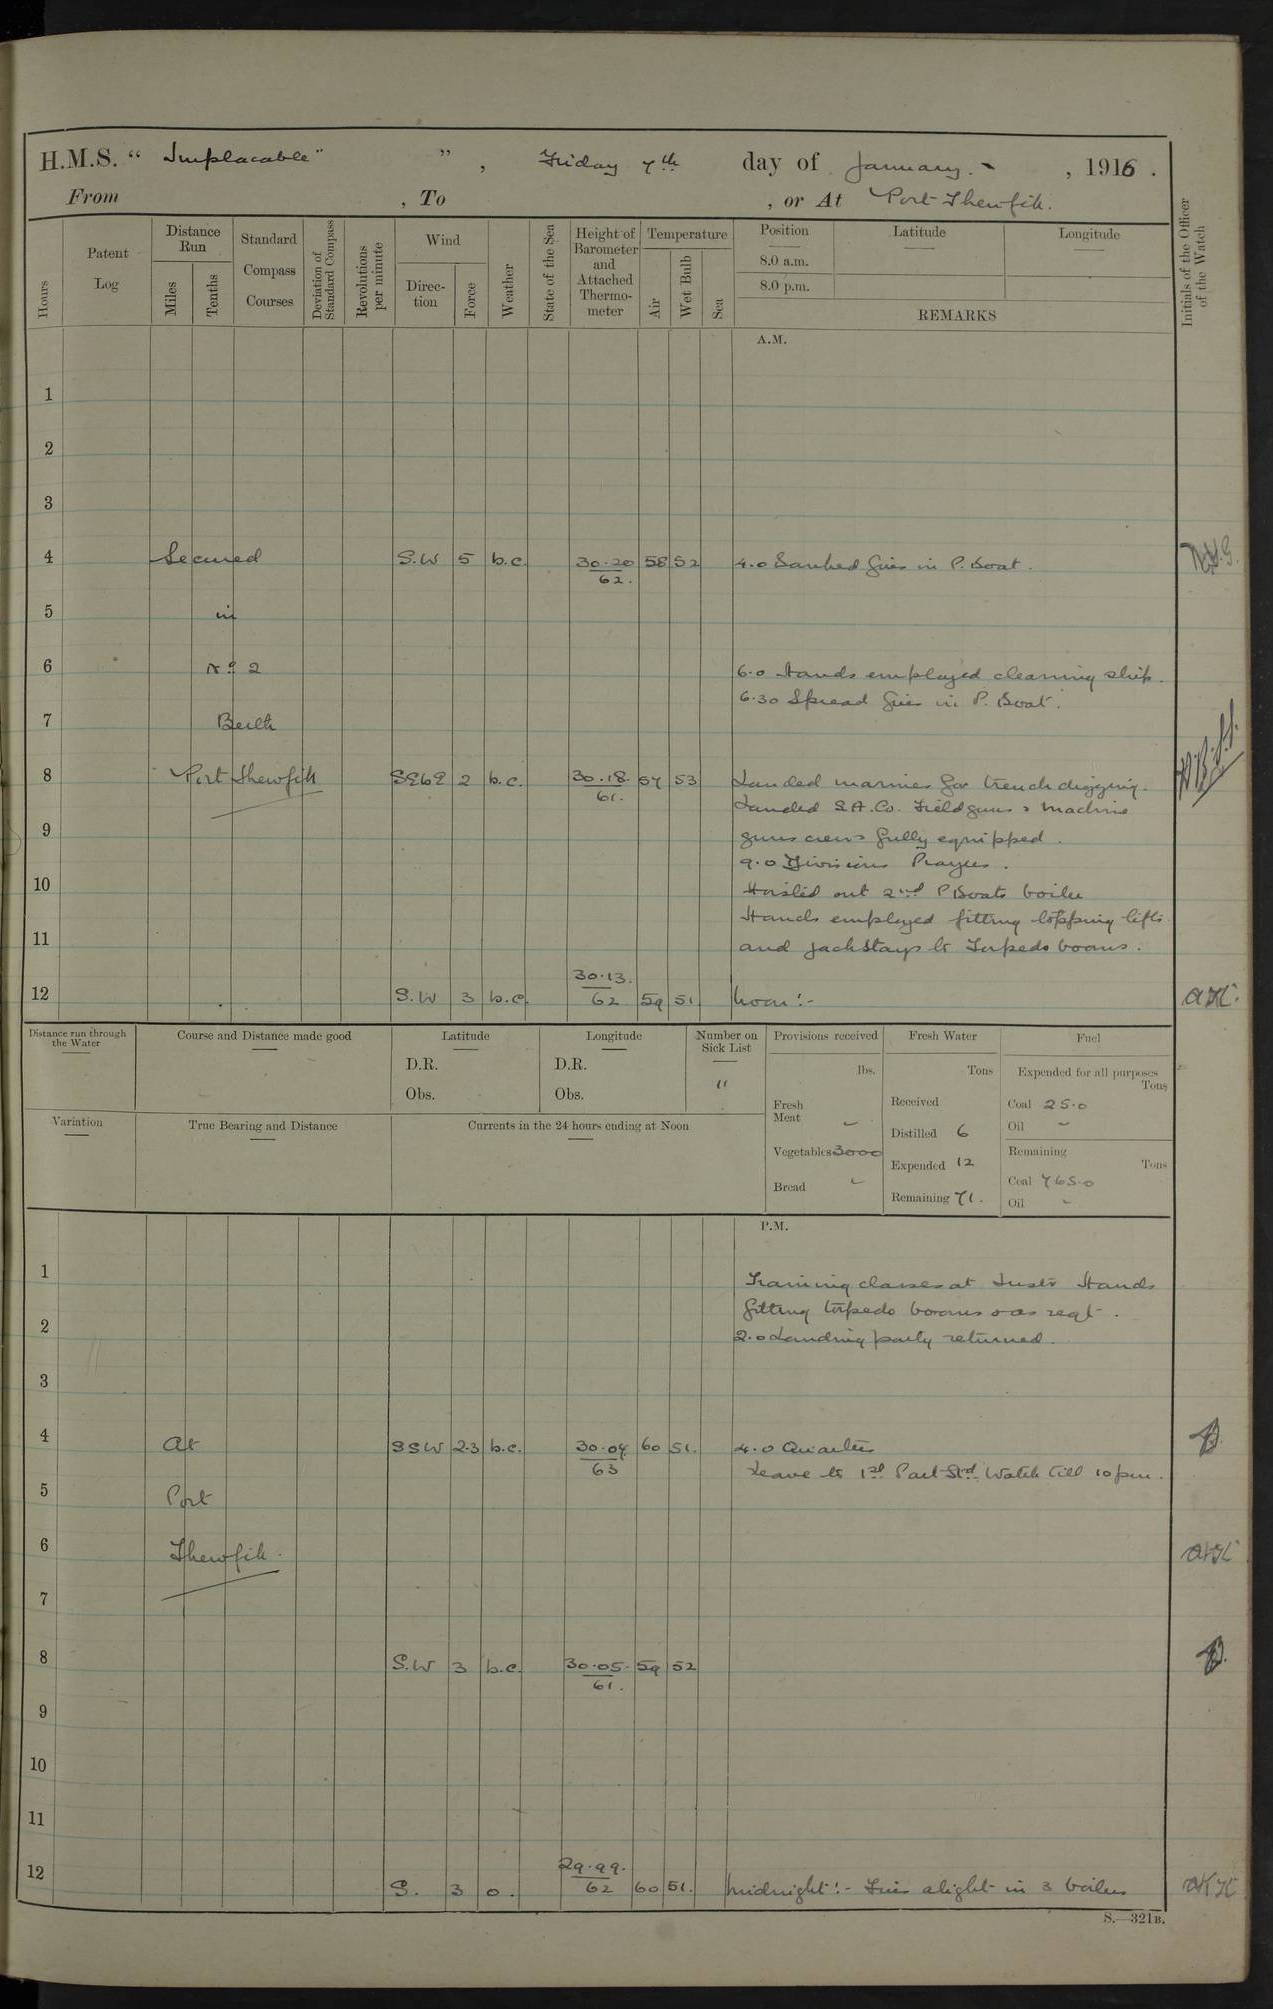 H.M.S. " Implacable " ", Friday 7th day of January. - , 1916.
From , To , or At Port Thewfik.
Hours
Patent Log
Distance Run
Miles
Tenths
Standard Compass Courses
Deviation of Standard Compass
Revolutions per minute
Wind
Direction
Force
Weather
State of the Sea
Height of Barometer and Attached Thermometer
Temperature
Air
Wet Bulb
Sea
Position
8.0 a.m.
8.0 p.m.
Latitude
Longitude
REMARKS
Initials of the Officer of the Watch
A.M.
1
2
3
4 Secured S.W 5 b.c. 30.20 58 52 4.0 Banked fires in P. Boat.
62.
5 in
6 No 2 6.0 Hands employed cleaning ship.
6.30 Spread fires in P. Boat.
7 Berth
8 Port Thewfik SEbE 2 b.c. 30.18. 57 53 Landed marines for trench digging.
61. Landed S.A. Co. Field guns & machine
9 guns crews fully equipped.
9.0 Divisions Prayers.
10 Hoisted out 2nd P Boats boiler
Hands employed fitting topping lifts
11 and jackstays to Torpedo booms.
30.13.
12 S.W 3 b.c. 62 59 51. Noon:-
Distance run through the Water
Course and Distance made good
Latitude
D.R.
Obs.
Longitude
D.R.
Obs.
Number on Sick List
11
Provisions received
lbs.
Fresh Meat -
Vegetables 3000
Bread -
Fresh Water
Tons
Received
Distilled 6
Expended 12
Remaining 71.
Fuel
Expended for all purposes
Tons
Coal 25.0
Oil -
Remaining
Tons
Coal 765.0
Oil -
Variation
True Bearing and Distance
Currents in the 24 hours ending at Noon
P.M.
1 Training classes at Instr Hands
fitting torpedo booms & as reqt.
2 2.0 Landing party returned.
3
4 At SSW 2-3 b.c. 30.07. 60 51. 4.0 Quarters
63 Leave to 1st Part Stbd Watch till 10 pm.
5 Port
6 Thewfik.
7
8 S.W 3 b.c. 30.05. 59 52
61.
9
10
11
29.99.
12 S. 3 o. 62 60 51. Midnight:- Fires alight in 3 boilers
S.—321B.